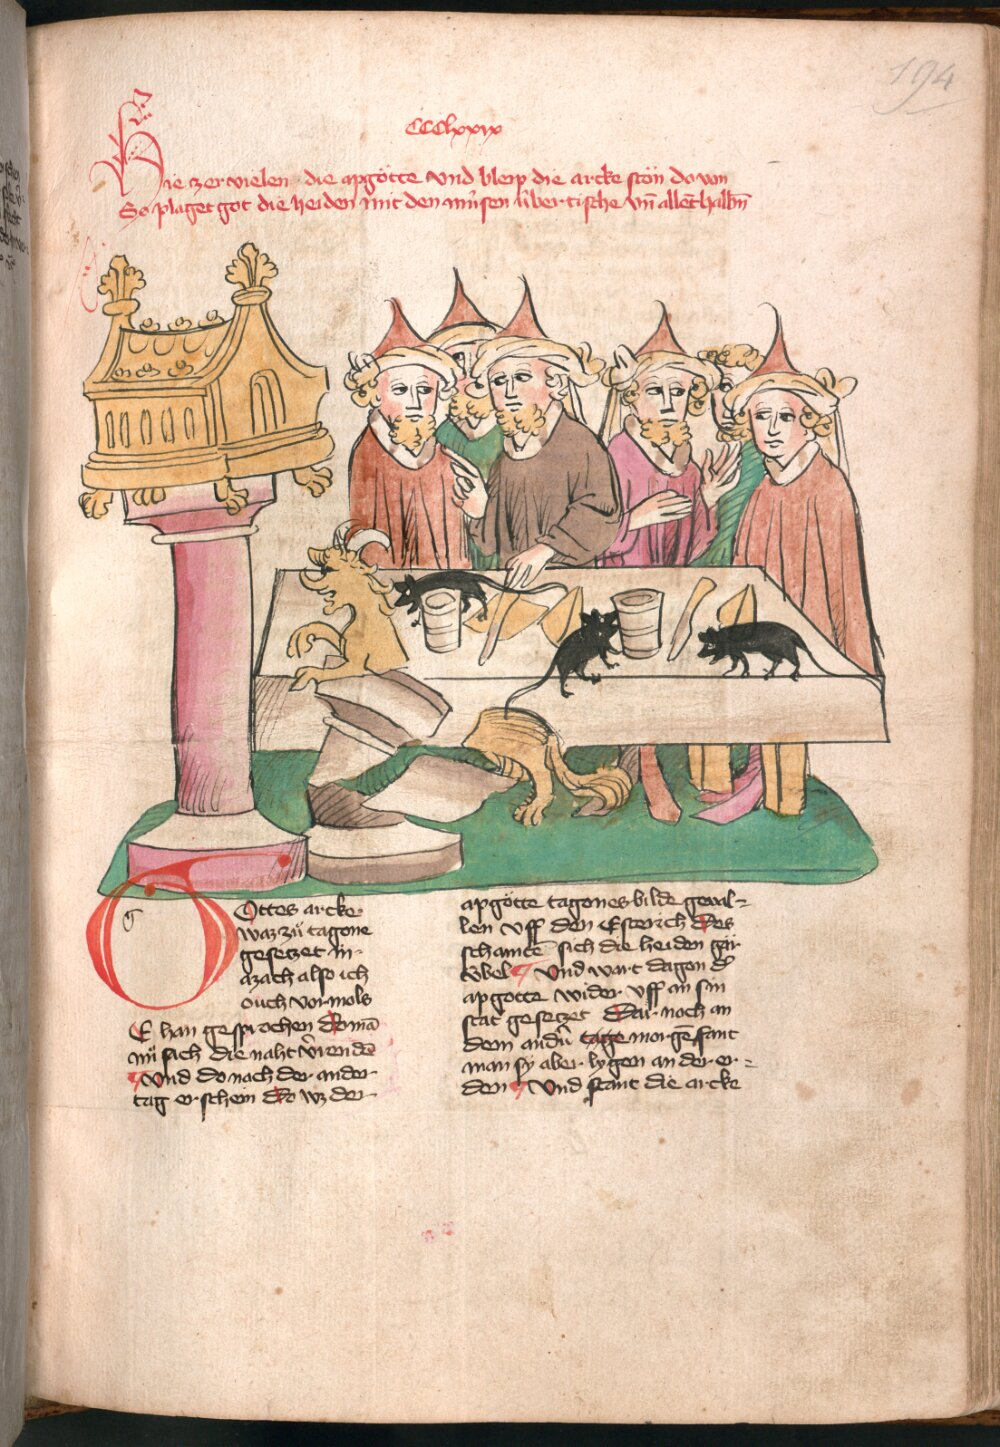 194
CCClxxix
Hie zervielen die apgötte vnd bleip die arcke ston do von
So plaget got die heiden mit den müsen über tische vn̄ allēthalbn̄
Gottes arcke
waz zů tagone
gesetzet in
azach also ich
ouch vormols
E han gesprochen Do mā
nů sach die naht v̄renden
Vnd do nach der ander
tag erschein Do wz der
apgötte tagones bilde geual-
len vff den Esterich Des
schamtē sich die heiden gar
Vbel Vnd wart dagon d̄
apgotte wider vff an sin
stat gesetzet Dar noch an
dem andn̄ tage morgē fant
man sy aber lygen an der er-
den Vnd stant die arcke